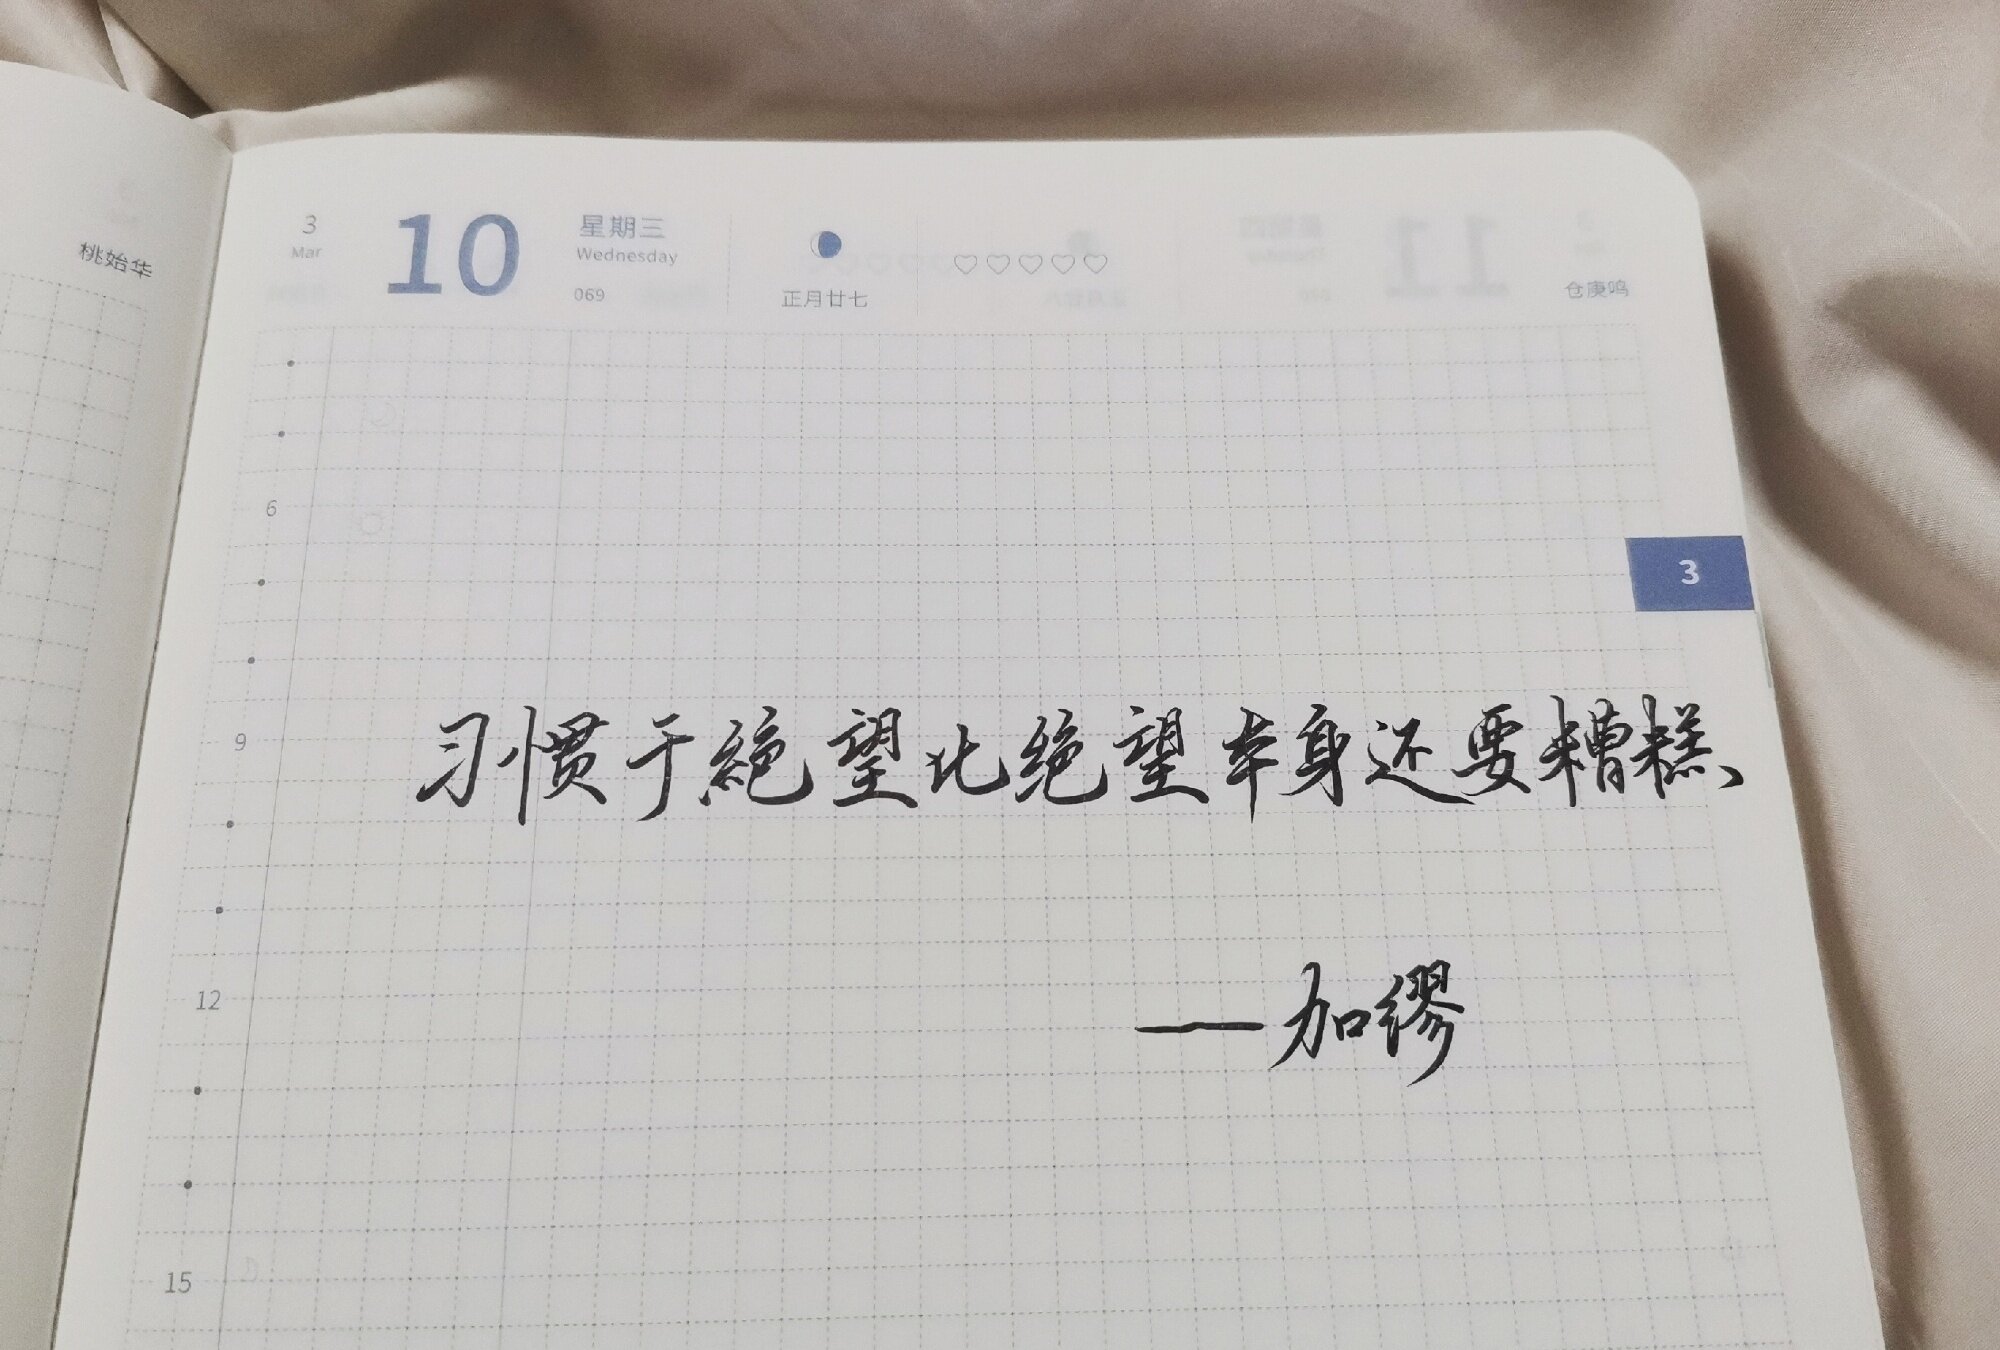 桃始华
3
Mar
10
星期三
Wednesday
069
正月廿七
仓庚鸣
3
6
9
习惯于絕望比绝望本身还要糟糕、
12
——加缪
15